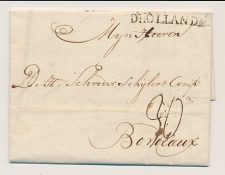 D'HOLLANDE
Myn Heeren
D. H. Schröder, Schÿler & Comp
20
Bordeaux